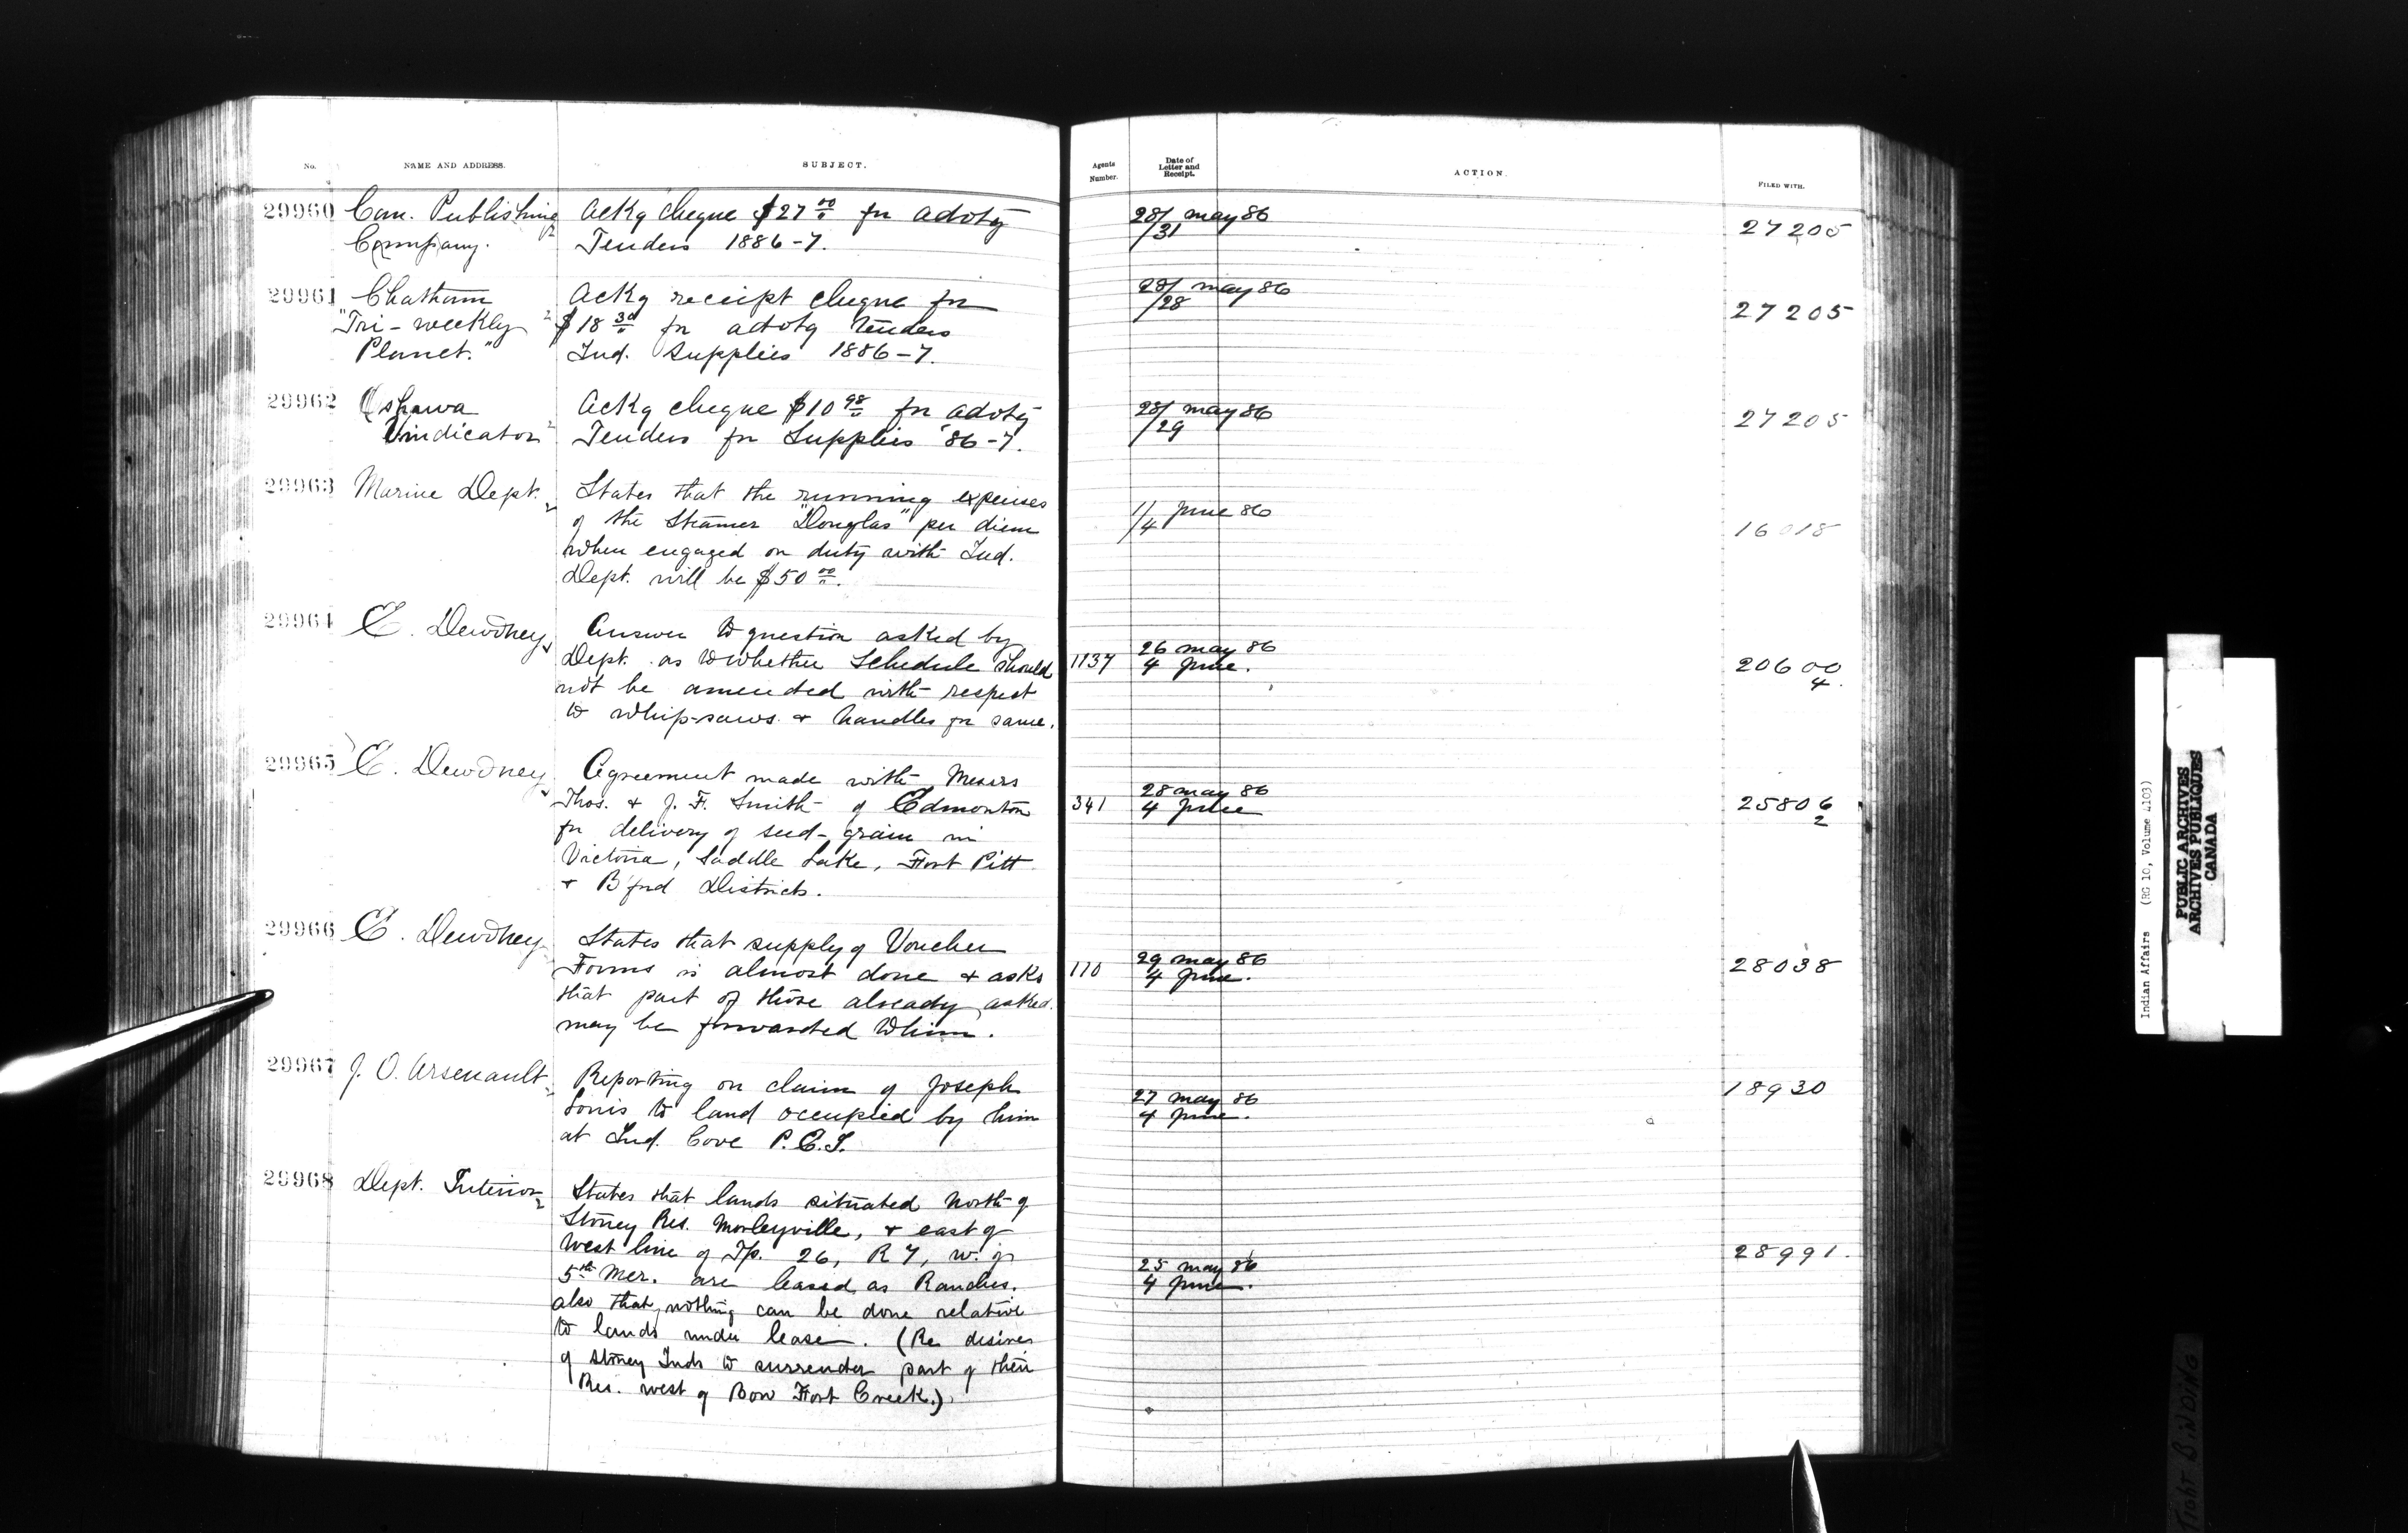 No. NAME AND ADDRESS. SUBJECT. Agents Number. Date of Letter and Receipt. ACTION. FILED WITH.
29960 Can. Publishing Ackg cheque $27 00 for advtg 28/ may 86 27205
Company. Tenders 1886-7. /31
29961 Chatham Ackg receipt cheque for 28/ may 86 27205
"Tri-weekly $18 30 for advtg tenders /28
Planet." Ind. Supplies 1886-7.
29962 Oshawa Ackg cheque $10 98 for advtg 28/ may 86 27205
Vindicator Tenders for Supplies '86-7. /29
29963 Marine Dept. States that the running expenses 1/ June 86 16018
of the Steamer "Douglas" per diem /4
when engaged on duty with Ind.
Dept. will be $50 00.
29964 E. Dewdney Answer to question asked by 26 may 86 20600
Dept. as to whether Schedule should 1137 4 June. 4.
not be amended with respect
to whip-saws & handles for same.
29965 E. Dewdney Agreement made with Messrs 28 may 86 25806
Thos. & J. F. Smith of Edmonton 341 4 June 2
for delivery of seed-grain in
Victoria, Saddle Lake, Fort Pitt
& B'ford Districts.
29966 E. Dewdney States that supply of Voucher 29 may 86 28038
Forms is almost done & asks 110 4 June.
that part of those already asked
may be forwarded to him.
29967 J. O. Arsenault Reporting on claim of Joseph 27 may 86 18930
Louis to land occupied by him 4 June.
at Ind. Cove P.E.I.
29968 Dept. Interior States that lands situated north of
Stoney Res. Morleyville, & east of
West line of Tp. 26, R 7, W. of 25 may 86 28991.
5th Mer. are leased as Ranches. 4 June.
also that nothing can be done relative
to lands under lease. (Re desires
of Stoney Inds to surrender part of their
Res. west of Bow Fort Creek.)
Indian Affairs (RG 10, Volume 4103)
PUBLIC ARCHIVES
ARCHIVES PUBLIQUES
CANADA
TIGHT BINDING